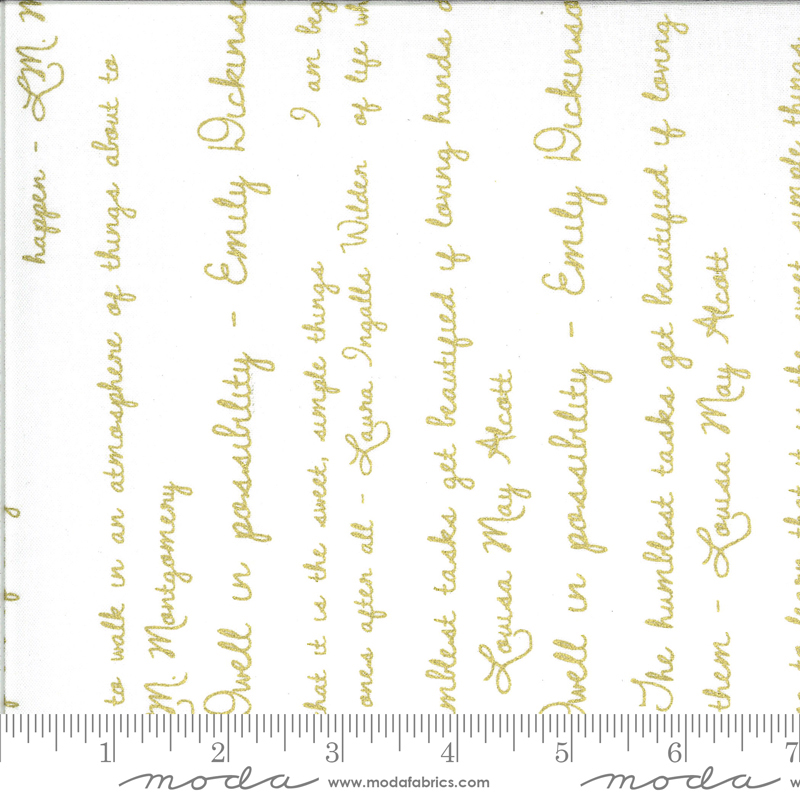 happen - L.M. M
to walk in an atmosphere of things about to
M. Montgomery
Dwell in possibility - Emily Dickinso
hat it is the sweet, simple things I am beg
ones after all - Laura Ingalls Wilder of life wh
mblest tasks get beautified if loving hands
Louisa May Alcott
Dwell in possibility - Emily Dickinso
The humblest tasks get beautified if loving
them - Louisa May Alcott
that it is the sweet, simple things
1 2 3 4 5 6 7
moda www.modafabrics.com moda w